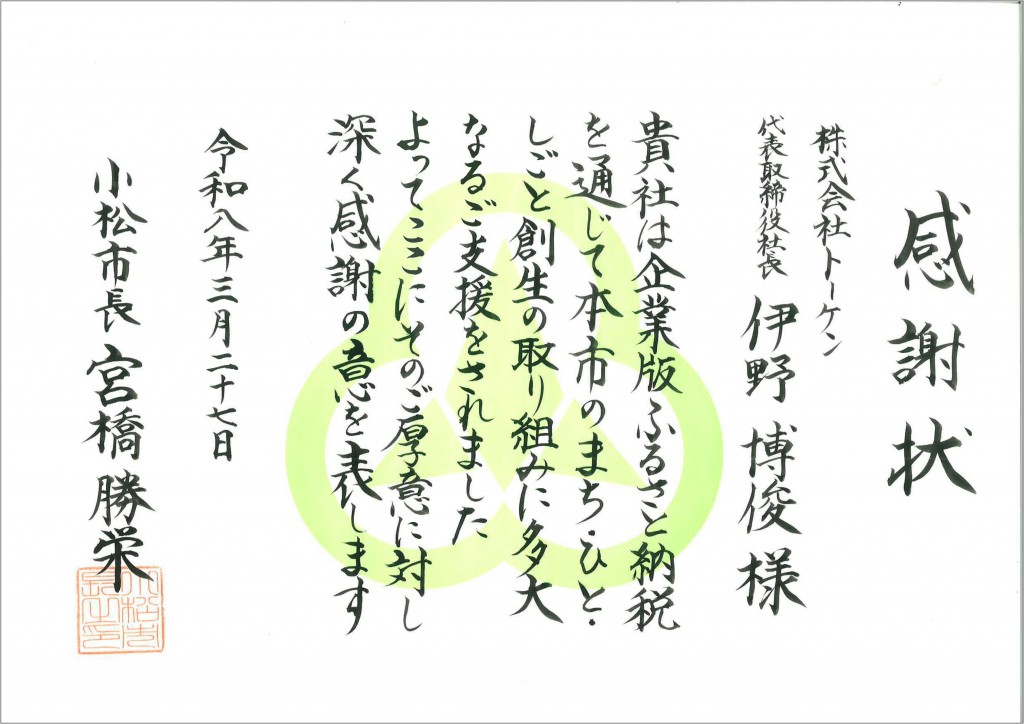 感謝状
株式会社トーケン
代表取締役社長
伊野 博俊 様
貴社は企業版ふるさと納税
を通じて本市のまち・ひと・
しごと創生の取り組みに多大
なるご支援をされました
よってここにそのご厚意に対し
深く感謝の意を表します
令和八年三月二十七日
小松市長 宮橋 勝栄
小松市
長之印